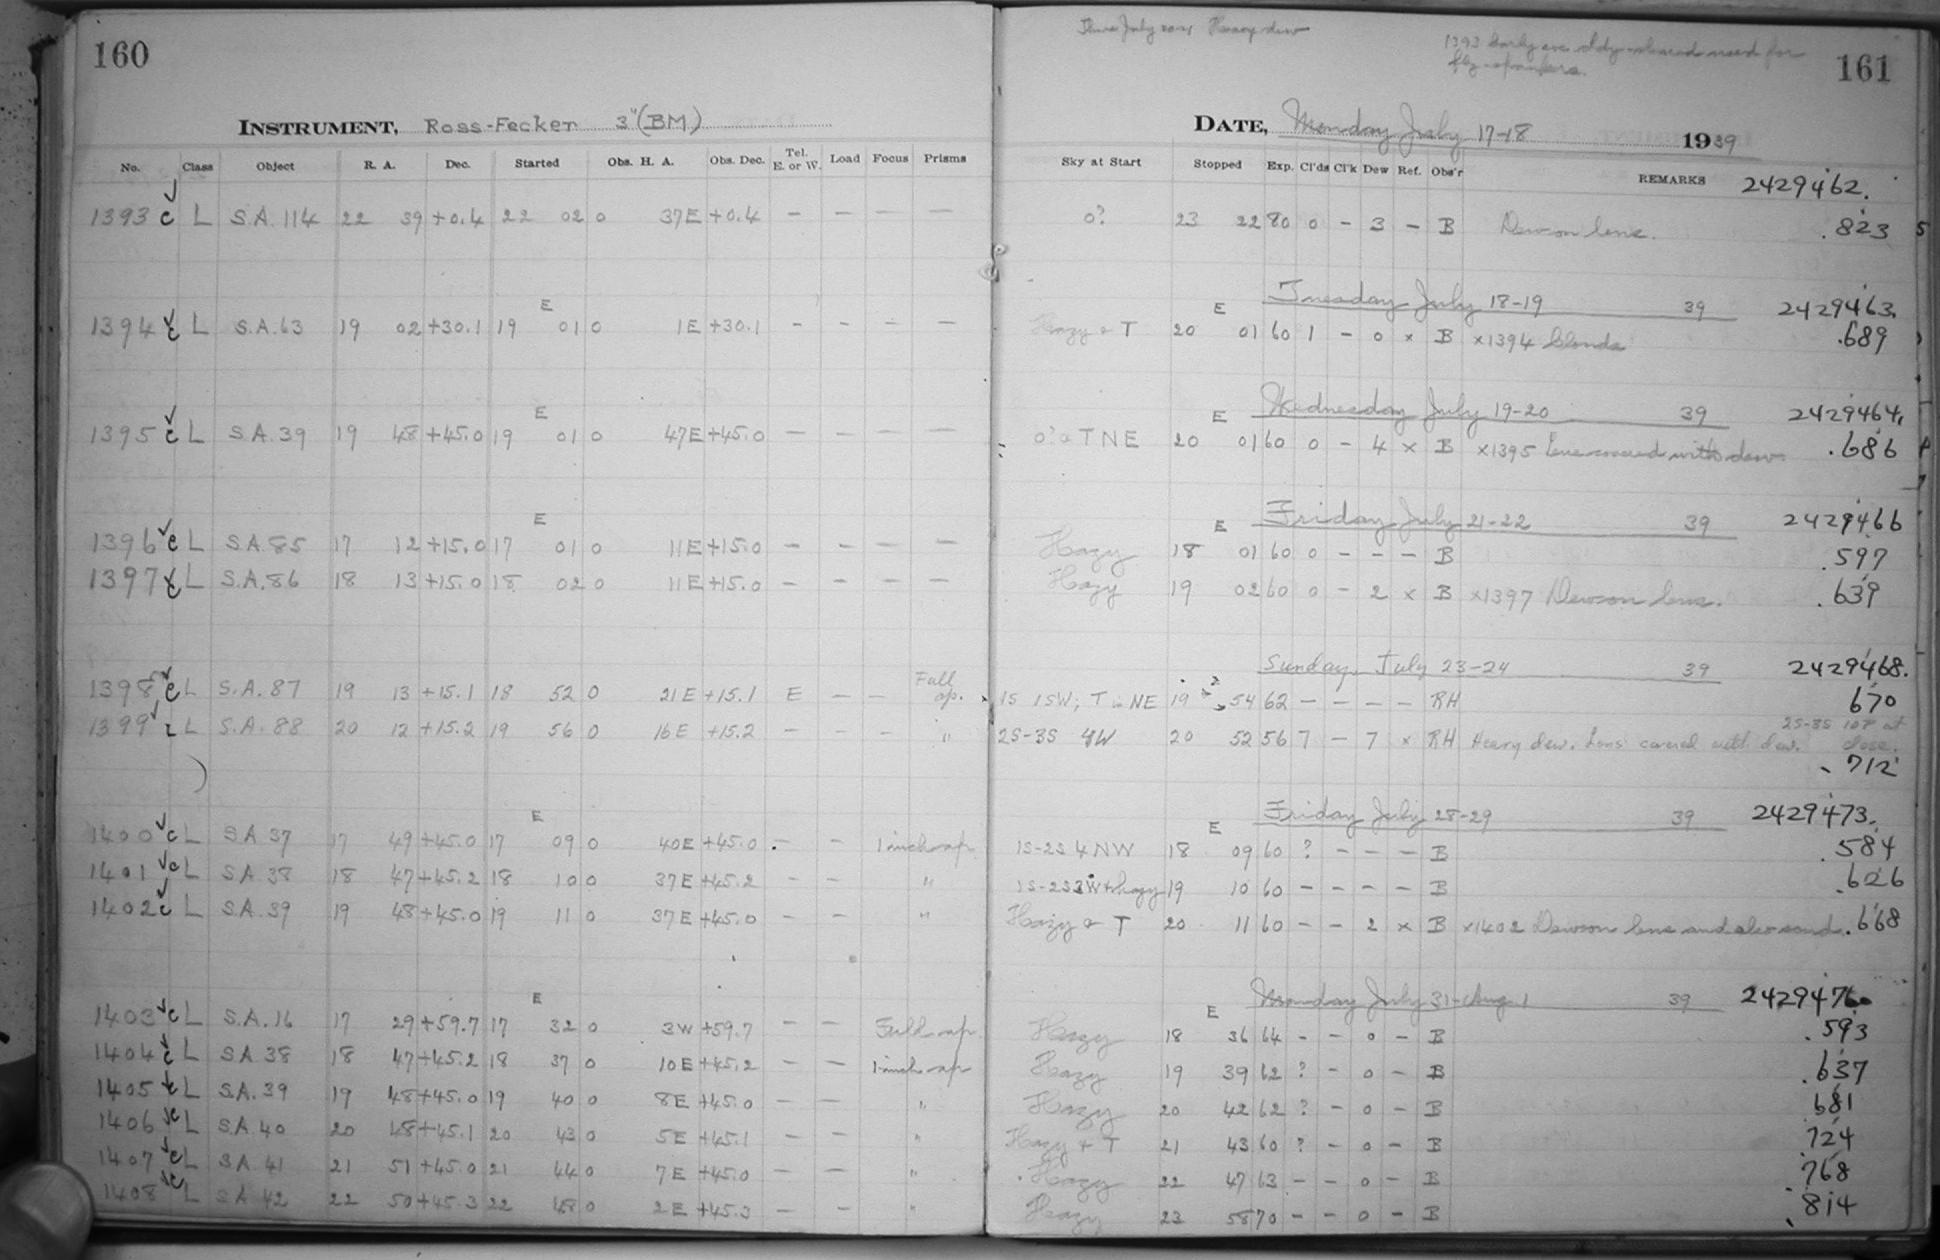 160
INSTRUMENT, Ross-Fecker 3"(BM)
No. Class Object R. A. Dec. Started Obs. H. A. Obs. Dec. Tel. E. or W. Load Focus Prisms
1393 c L S.A. 114 22 39 +0.4 22 02 0 37E +0.4 – – – –
E
1394 c L S.A. 63 19 02 +30.1 19 01 0 1E +30.1 – – – –
E
1395 c L S.A. 39 19 48 +45.0 19 01 0 47E +45.0 – – – –
E
1396 c L S.A. 85 17 12 +15.0 17 01 0 11E +15.0 – – – –
1397 c L S.A. 86 18 13 +15.0 18 02 0 11E +15.0 – – – –
1398 c L S.A. 87 19 13 +15.1 18 52 0 21E +15.1 E – – Full ap.
1399 L S.A. 88 20 12 +15.2 19 56 0 16E +15.2 – – – "
E
1400 c L S.A. 37 17 49 +45.0 17 09 0 40E +45.0 – 1 inch ap.
1401 c L S.A. 38 18 47 +45.2 18 10 0 37E +45.2 – – "
1402 c L S.A. 39 19 48 +45.0 19 11 0 37E +45.0 – – "
E
1403 c L S.A. 16 17 29 +59.7 17 32 0 3W +59.7 – – Full ap.
1404 c L S.A. 38 18 47 +45.2 18 37 0 10E +45.2 – – 1-inch ap
1405 c L S.A. 39 19 48 +45.0 19 40 0 8E +45.0 – – "
1406 c L S.A. 40 20 48 +45.1 20 43 0 5E +45.1 – – "
1407 c L S.A. 41 21 51 +45.0 21 44 0 7E +45.0 – – "
1408 c L S.A. 42 22 50 +45.3 22 48 0 2E +45.3 – – "
Hazy dew
1393 Early eve cldy
161
DATE, Monday July 17-18 1939
Sky at Start Stopped Exp. Cl'ds Cl'k Dew Ref. Obs'r REMARKS 2429462.
0? 23 22 80 0 – 3 – B Dew on lens. .823
E Tuesday July 18-19 39 2429463.
Hazy + T 20 01 60 1 – 0 × B ×1394 Clouds .689
E Wednesday July 19-20 39 2429464.
T NE 20 01 60 0 – 4 × B ×1395 Lens covered with dew. .686
E Friday July 21-22 39 2429466
Hazy 18 01 60 0 – – – B .597
Hazy 19 02 60 0 – 2 × B ×1397 Dew on lens. .639
Sunday July 23-24 39 2429468.
1S 1SW; T in NE 19 54 62 – – – – RH 670
2S-3S 4W 20 52 56 7 – 7 × RH Heavy dew. Lens covered with dew. 2S-3S 10? at close.
.712
E Friday July 28-29 39 2429473.
1S-2S 4NW 18 09 60 ? – – – B .584
1S-2S 3W + hazy 19 10 60 – – – – B .626
Hazy + T 20 11 60 – – 2 × B ×1402 Dew on lens and also sand. .668
E Monday July 31-Aug 1 39 2429476.
Hazy 18 36 64 – – 0 – B .593
Hazy 19 39 62 ? – 0 – B .637
Hazy 20 42 62 ? – 0 – B 681
Hazy + T 21 43 60 ? – 0 – B 724
Hazy 22 47 63 – – 0 – B 768
Hazy 23 58 70 – – 0 – B .814